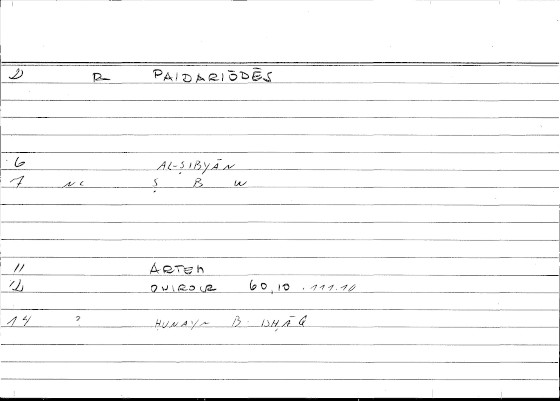 2) R PAIDARIŌDĒS
6 AL-ṢIBYĀN
7 NC Ṣ B W
11 ARTEM
12 ONIROCR 60,10 . 111.10
14 ? ḤUNAYN B. ISḤĀQ